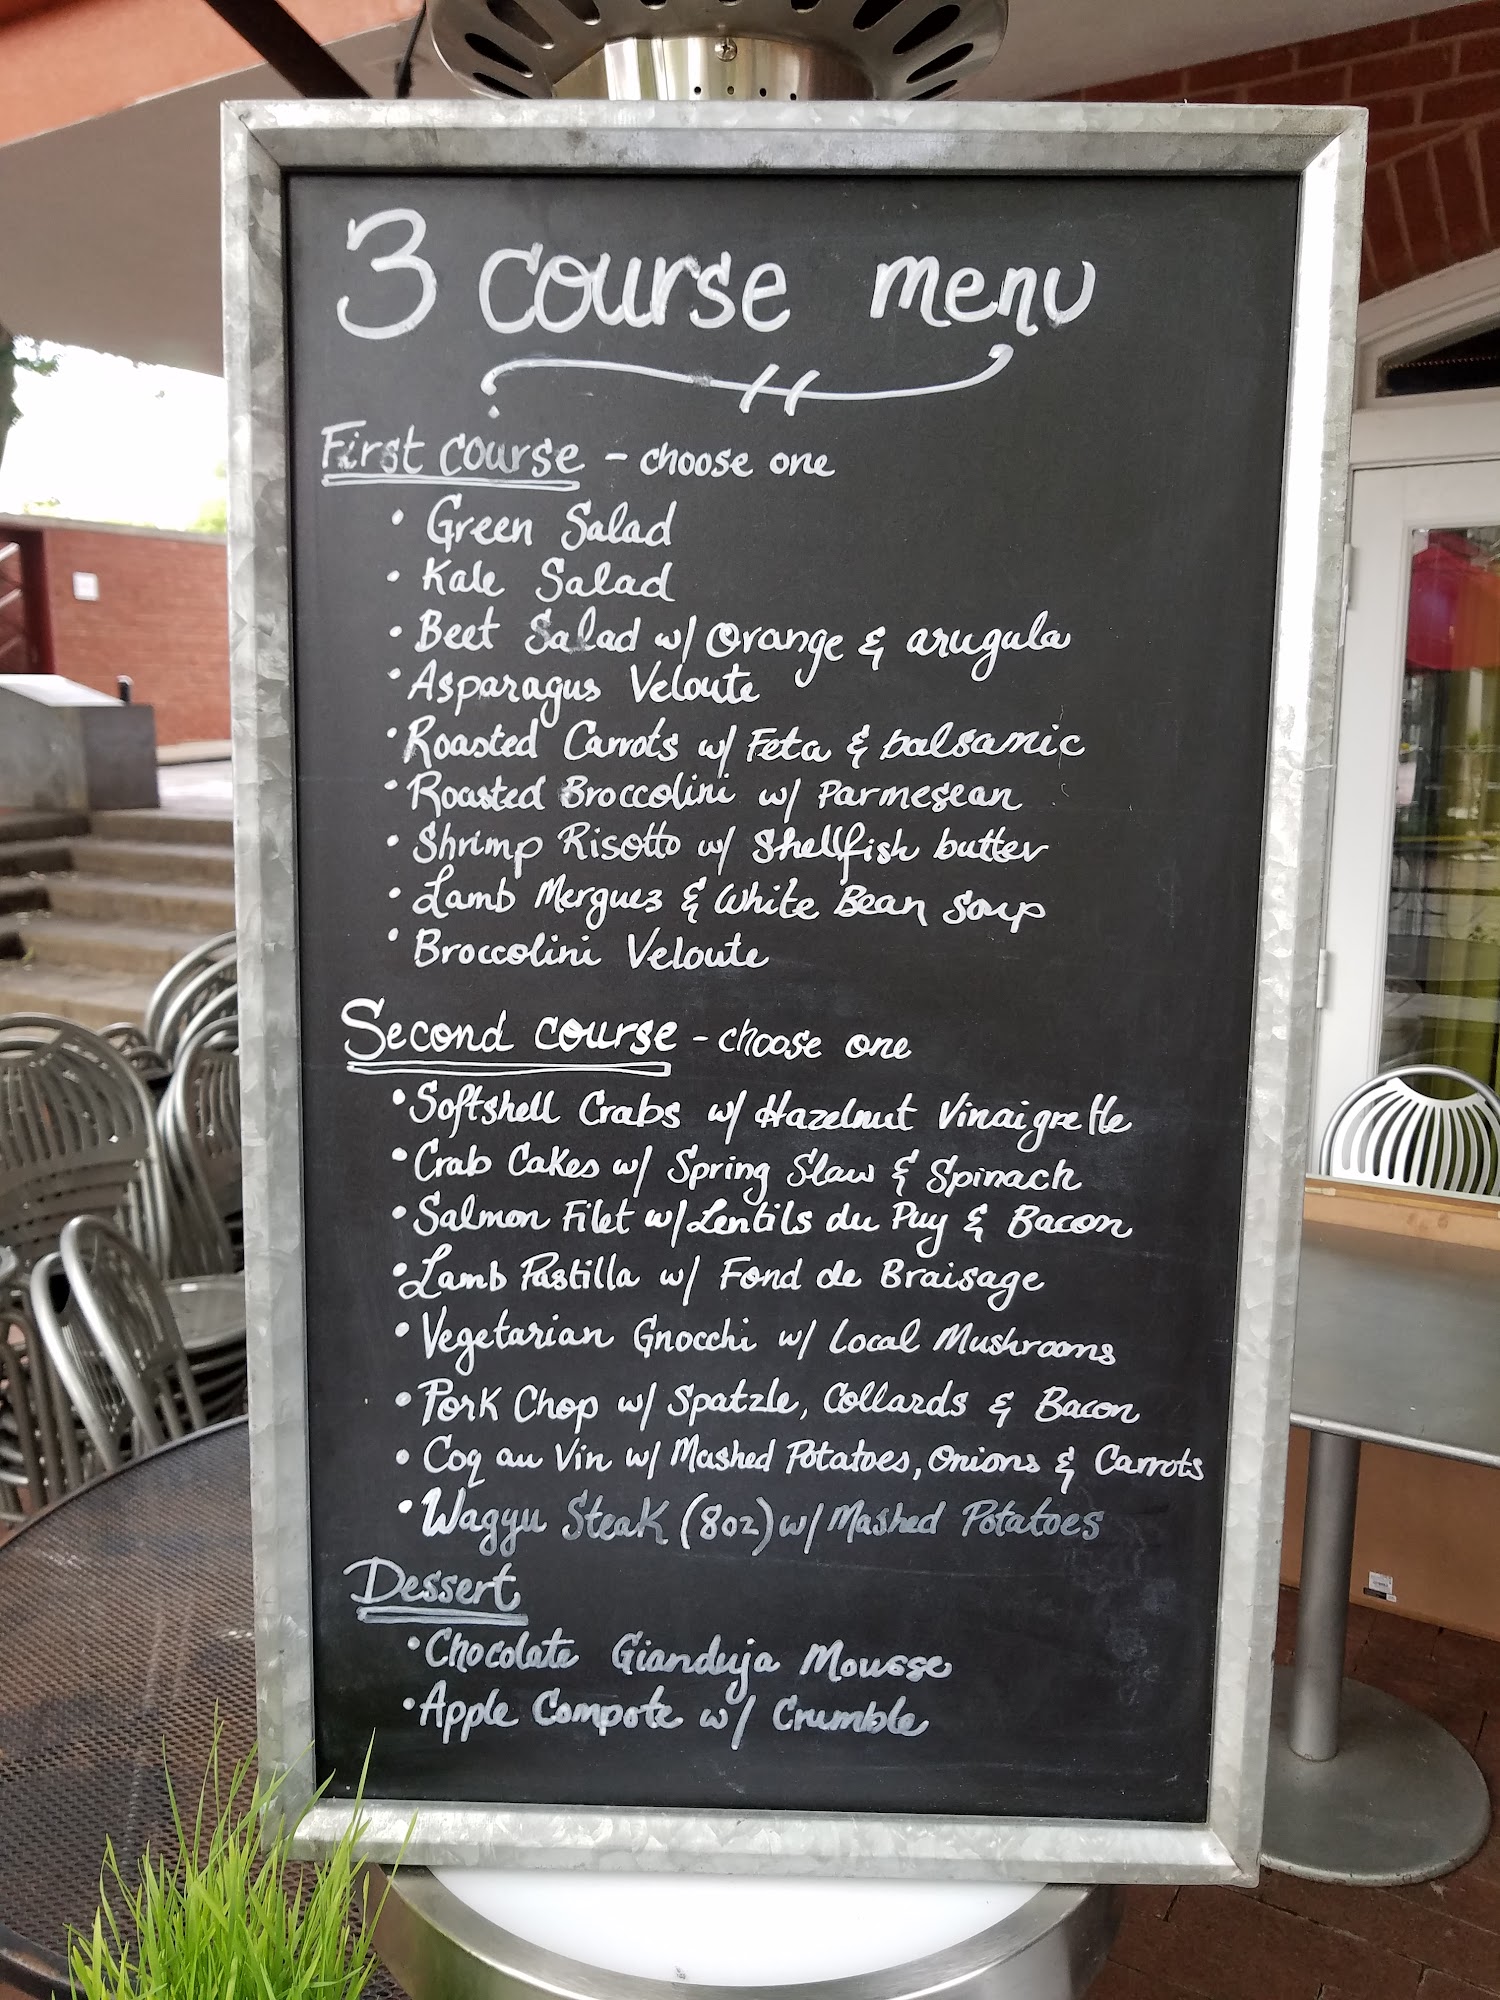 3 course menu
First course - choose one
• Green Salad
• Kale Salad
• Beet Salad w/ Orange & arugula
• Asparagus Veloute
• Roasted Carrots w/ Feta & balsamic
• Roasted Broccolini w/ Parmesean
• Shrimp Risotto w/ Shellfish butter
• Lamb Merguez & White Bean Soup
• Broccolini Veloute
Second course - choose one
• Softshell Crabs w/ Hazelnut Vinaigrette
• Crab Cakes w/ Spring Slaw & Spinach
• Salmon Filet w/ Lentils du Puy & Bacon
• Lamb Pastilla w/ Fond de Braisage
• Vegetarian Gnocchi w/ Local Mushrooms
• Pork Chop w/ Spatzle, Collards & Bacon
• Coq au Vin w/ Mashed Potatoes, Onions & Carrots
• Wagyu Steak (8oz) w/ Mashed Potatoes
Dessert
• Chocolate Gianduja Mousse
• Apple Compote w/ Crumble